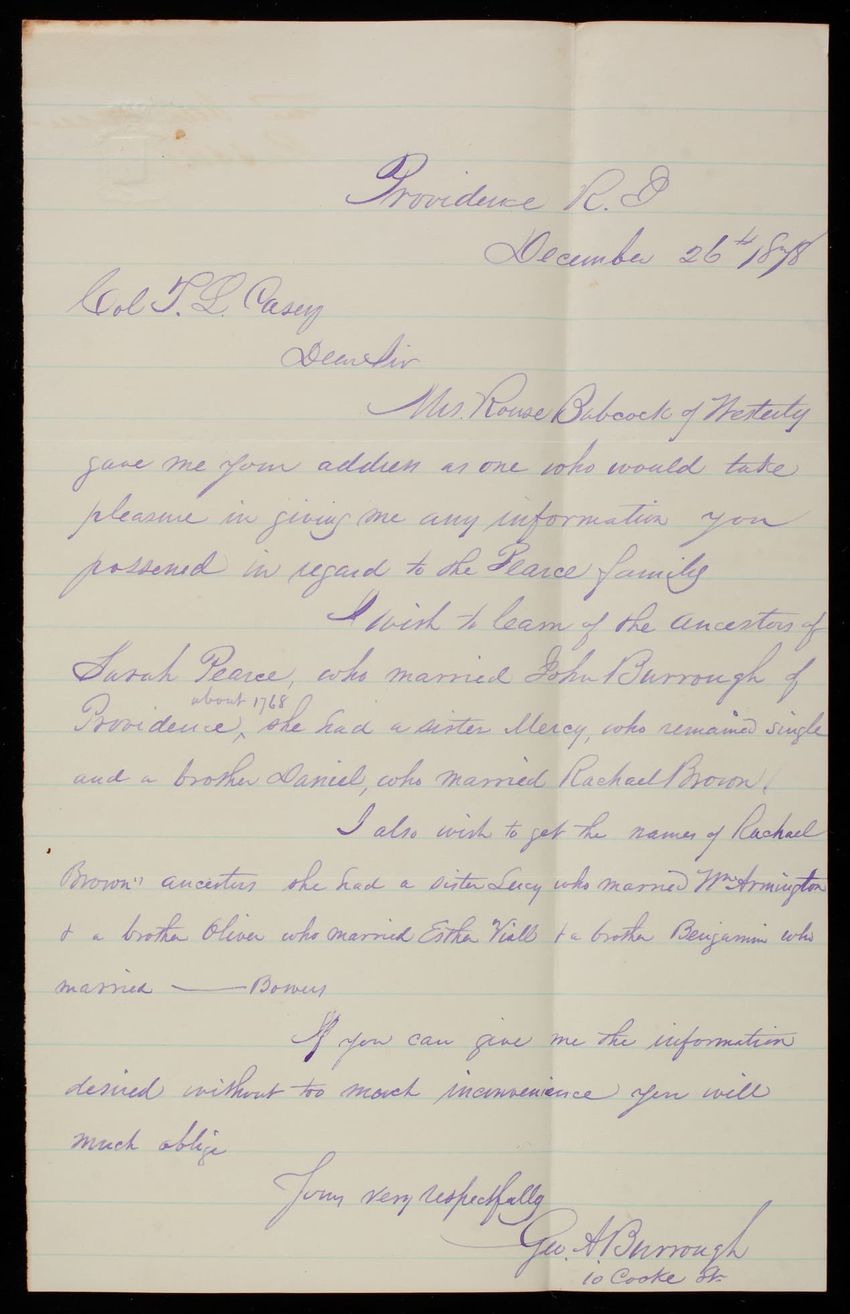 Providence R. I
December 26th, 1878
Col T. L. Casey
Dear Sir
Mrs. Rouse Babcock of Westerly
gave me your address as one who would take
pleasure in giving me any information you
possessed in regard to the Pearce family
I wish to learn of the ancestors of
Sarah Pearce, who married John Burrough of
about 1768
Providence, ^ she had a sister Mercy, who remained single
and a brother Daniel, who married Rachael Brown.
I also wish to get the names of Rachael
Brown's ancestors she had a sister Lucy who married Wm Armington
& a brother Oliver who married Esther Viall & a brother Benjamin who
married —— Bowers
If you can give me the information
desired without too much inconvenience you will
much oblige
Yours very respectfully
Geo. A. Burrough
10 Cooke St.